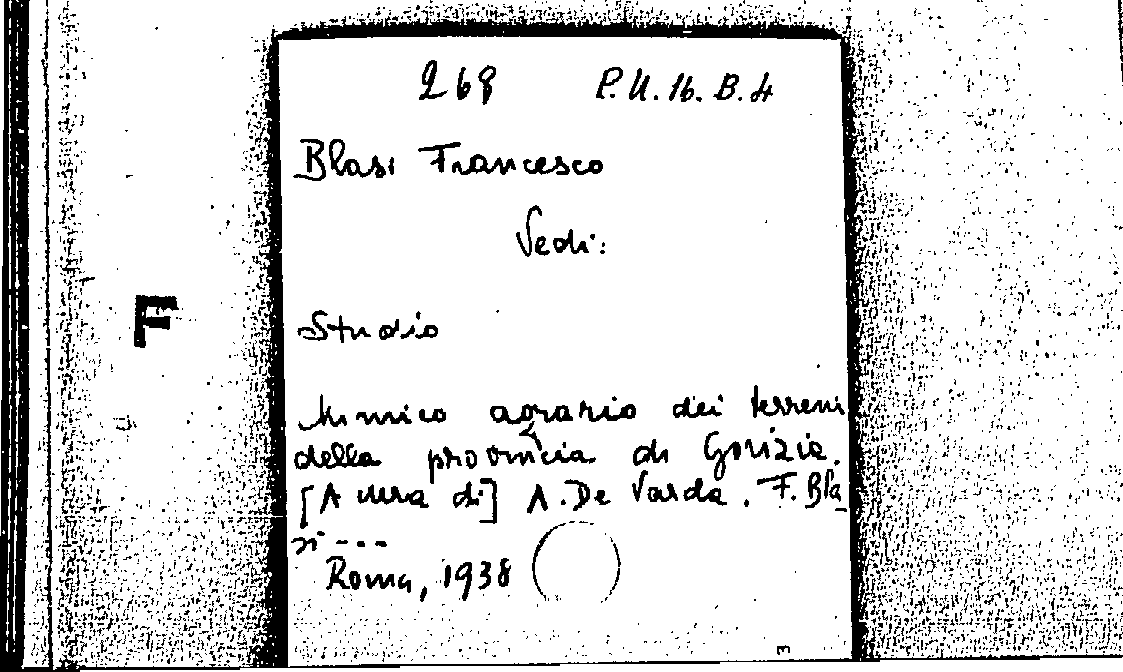 268 P.U.16.B.4
Blasi Francesco
Vedi:
F
Studio
chimico agrario dei terreni
della provincia di Gorizia.
[A cura di] A. De Varda. F. Bla
si ---
Roma, 1938
3